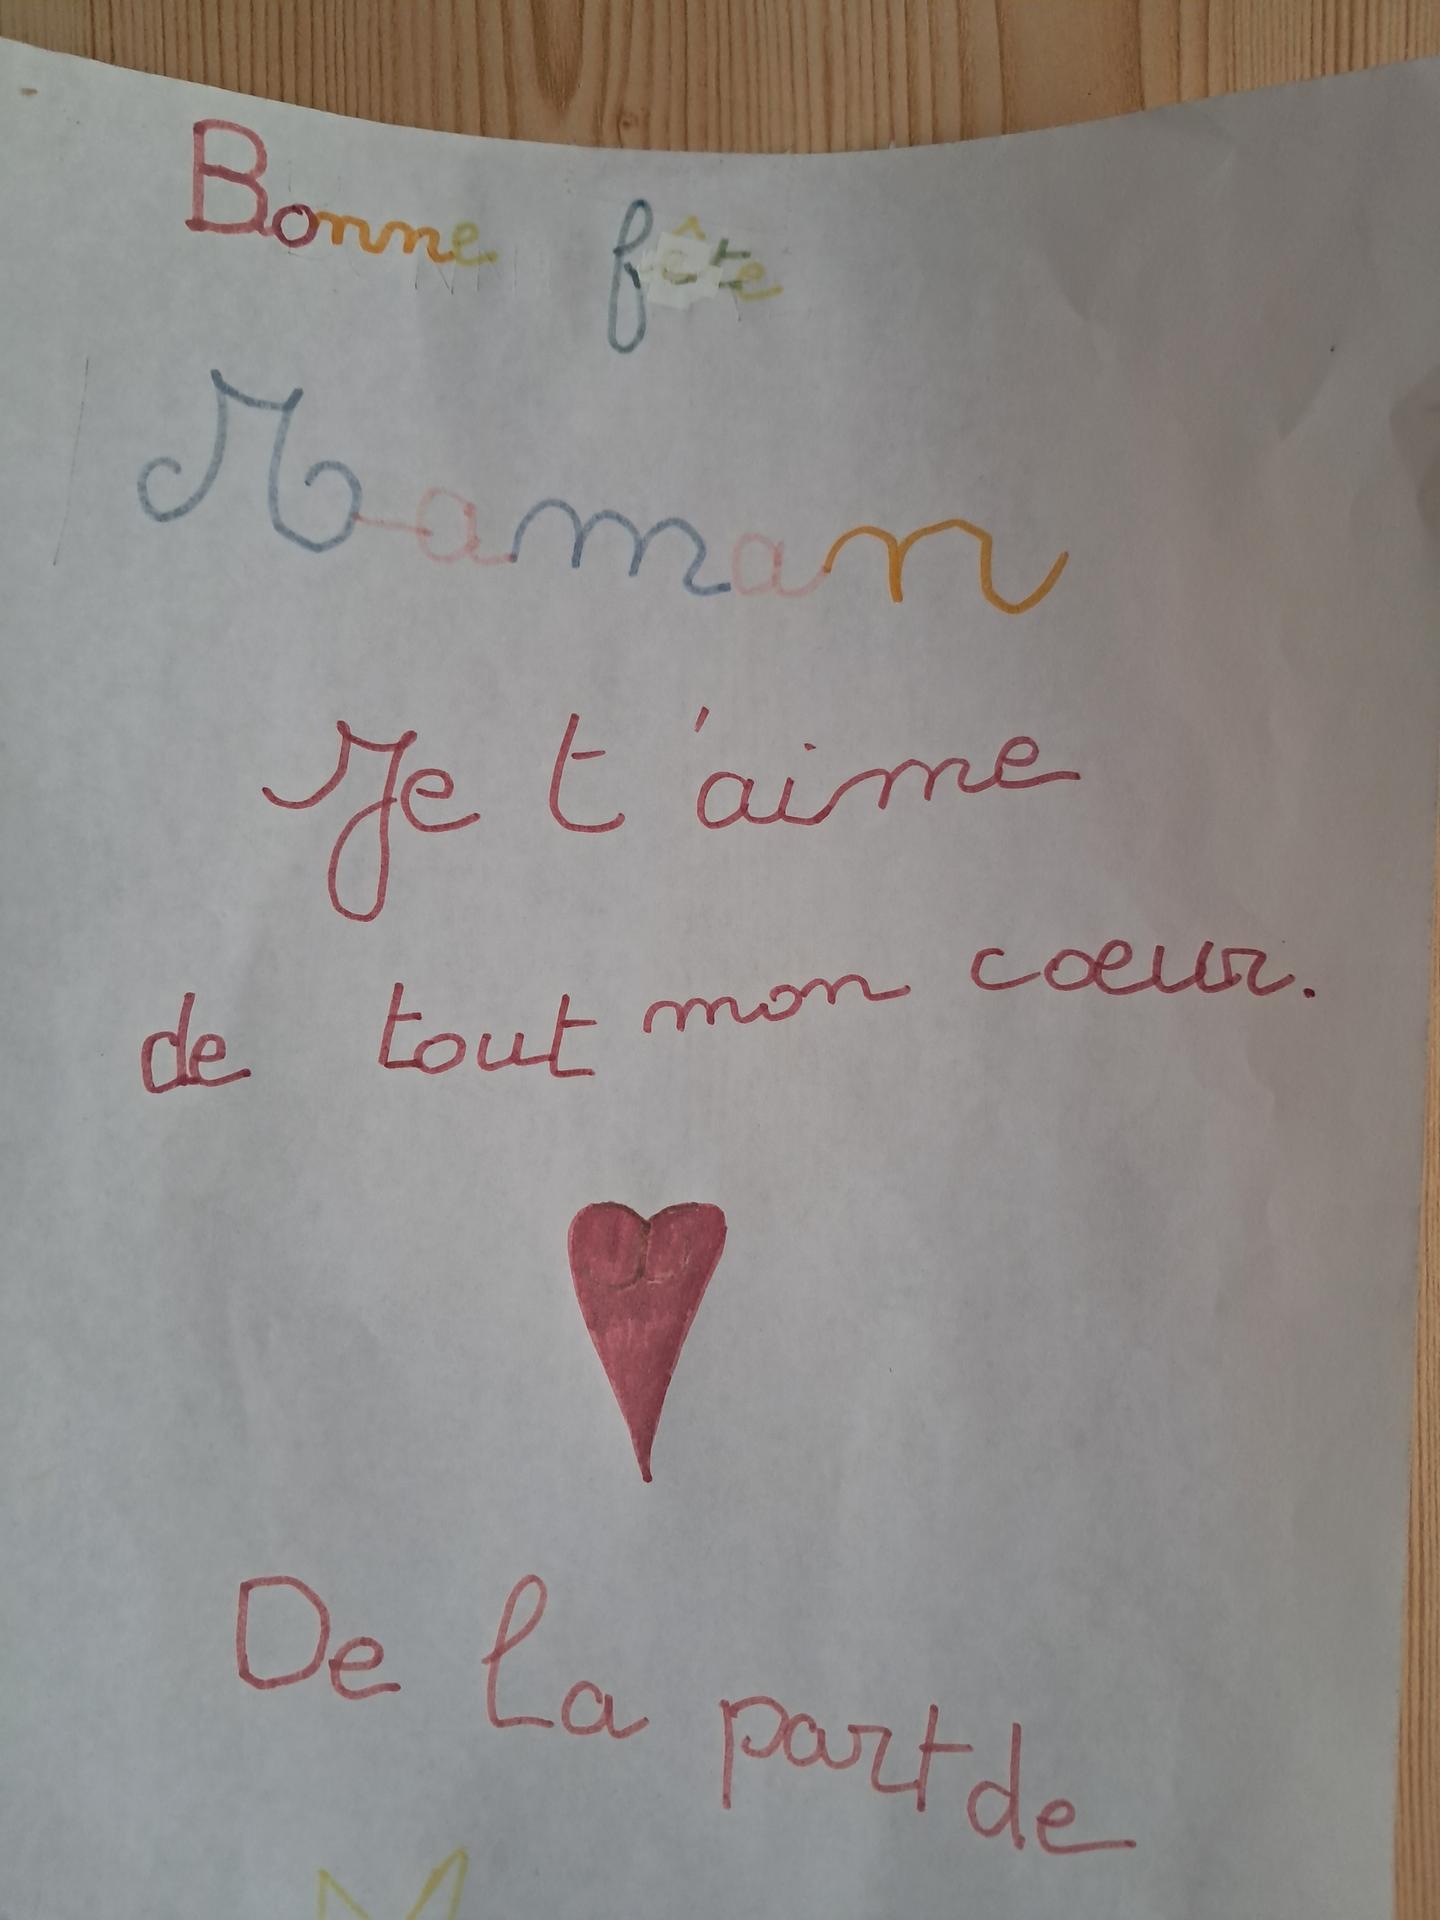 Bonne fête
Maman
Je t'aime
de tout mon cœur.
De la part de